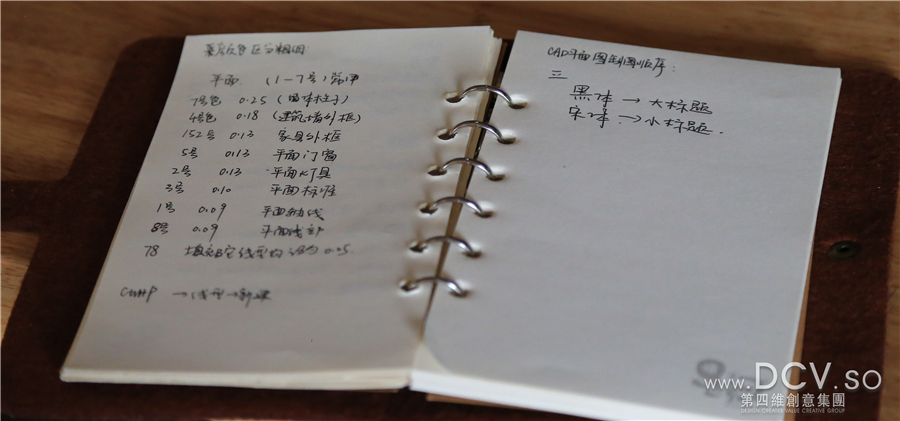 平面 (1-7号)
7号色 0.25 (墙体柱子)
4号色 0.18 (建筑墙外框)
152号 0.13 家具外框
5号 0.13 平面门窗
2号 0.13 平面灯具
3号 0.10 平面标注
1号 0.09 平面轴线
8号 0.09 平面
78 填充 线型均设为 0.05
→ 线型 →
CAD平面图制图顺序:
三
黑体 → 大标题
宋体 → 小标题.
www.DCV.so
第四維創意集團
DESIGN CREATER VALUE CREATIVE GROUP